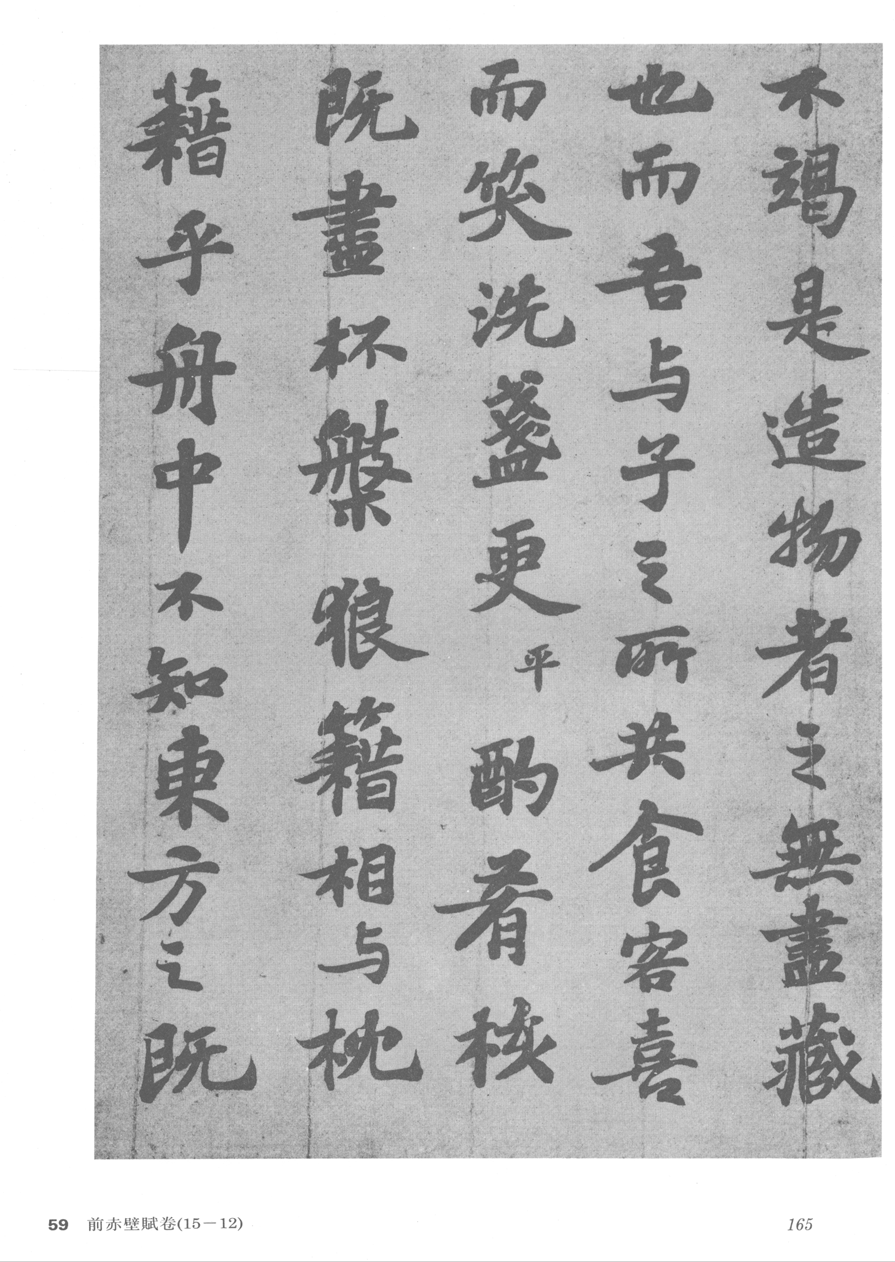 不竭是造物者之無盡藏
也而吾与子之所共食客喜
而笑洗盞更平酌肴核
既盡杯槃狼籍相与枕
藉乎舟中不知東方之既
59 前赤壁賦卷(15－12)
165